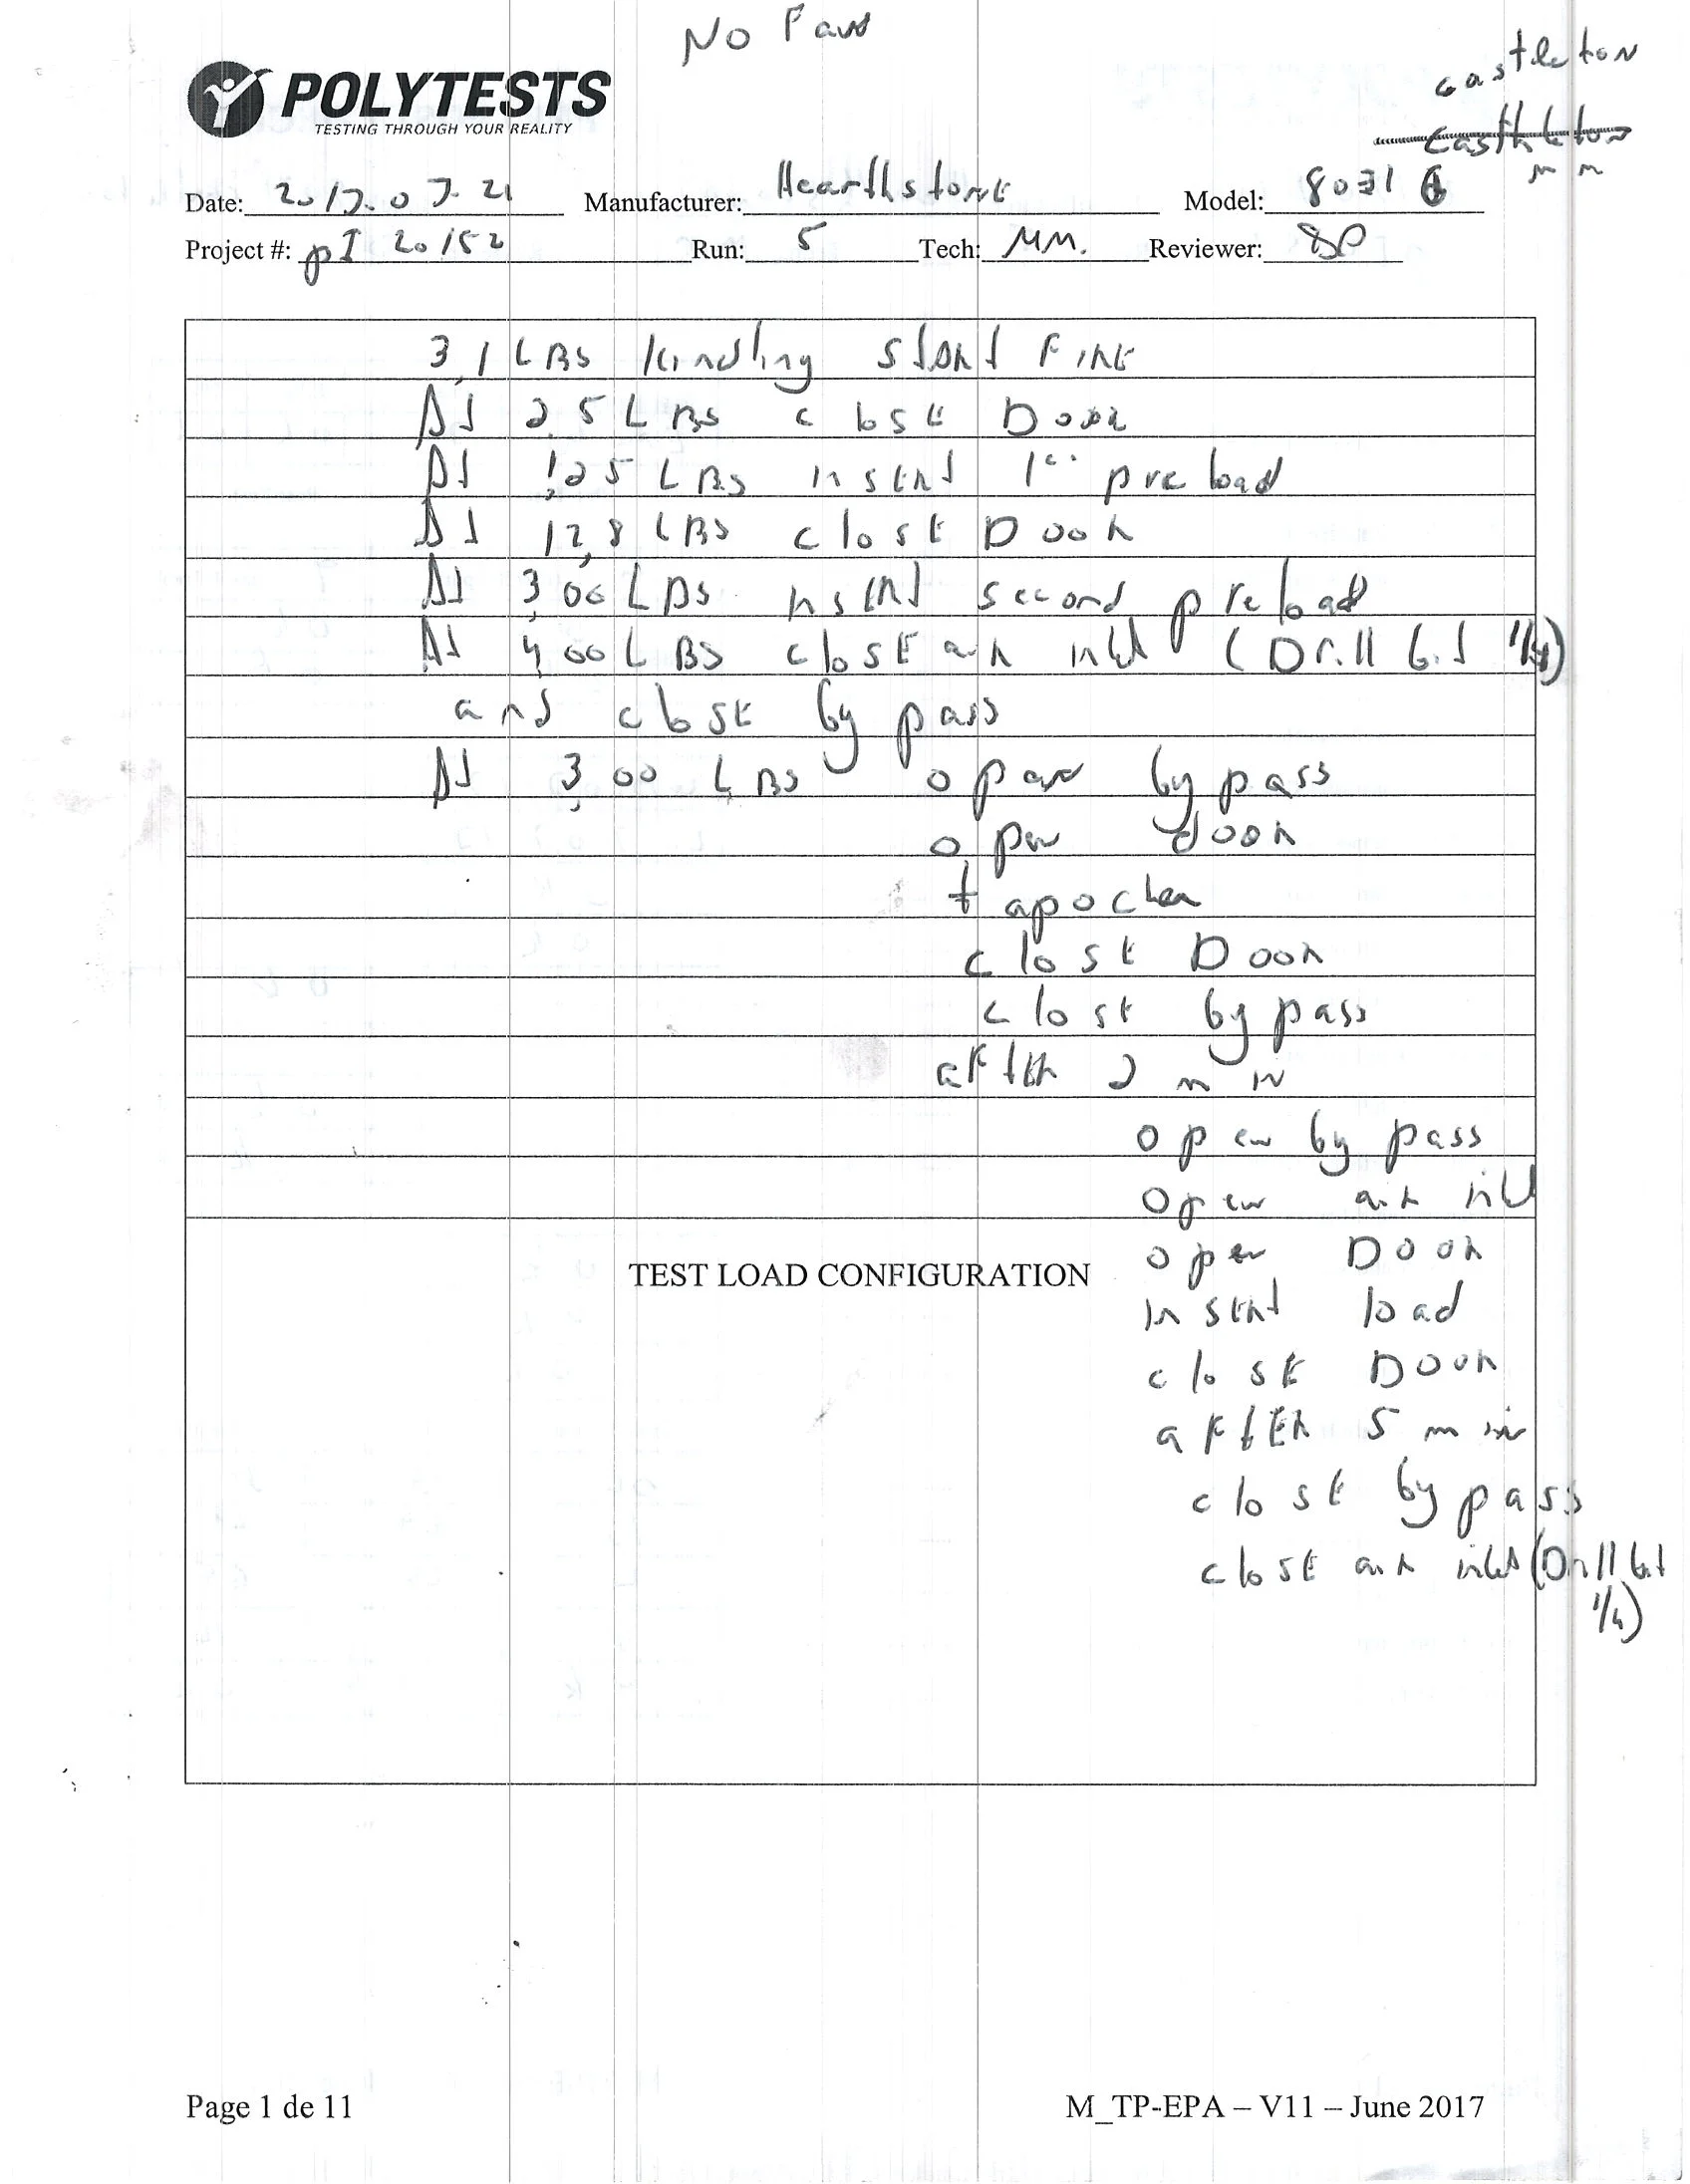 No Fan
castleton
POLYTESTS
TESTING THROUGH YOUR REALITY
mm
Date: 2017.07.21 Manufacturer: Hearthstone Model: 8031
Project #: pI 20152 Run: 5 Tech: MM. Reviewer:
3,1 LBS kindling start FirE
At 2,5 LBS closE Door
At LBS insErt preload
At 12,8 LBS closE Door
At 3,00 LBS insErt second preload
At 4,00 LBS closE air inlet (Drill bit 1/4)
and closE by pass
At 3,00 LBS open by pass
open door
closE Door
closE by pass
aFtEr 2 min
open by pass
open air inlet
open Door
TEST LOAD CONFIGURATION
insErt load
closE Door
aFtEr 5 min
closE by pass
closE air inlet (Drill bit
1/4)
Page 1 de 11 M_TP-EPA – V11 – June 2017